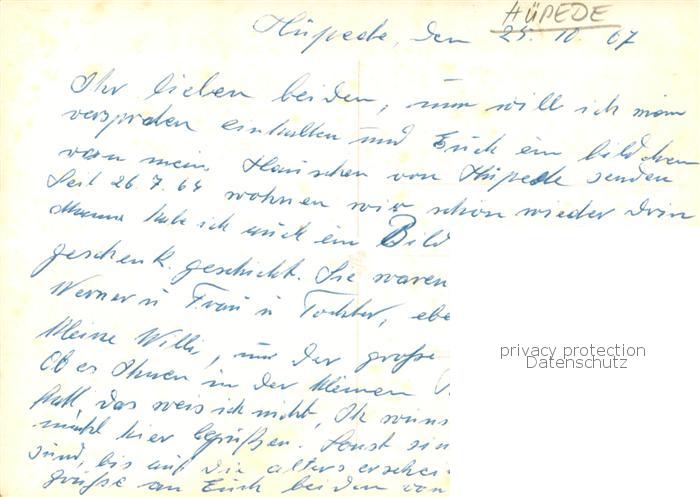 HÜPEDE
Hüpede, den 25. 10. 67
Ihr lieben beiden, nun will ich mein
versprechen einhalten und Euch ein bildchen
von mein Häuschen von Hüpede senden
Seit 26.7.64 wohnen wir schon wieder drin
Mama habe ich auch ein Bild
geschenk. geschickt. Sie waren
Werner u Frau u Tochter, ebe
kleine Willi, nur der große
Ob es Ihnen in der kleinen
statt, das weis ich nicht, Ich wüns
mahl hier begrüßen. Sonst sin
sund, bis auf die alters erschei
grüße an Euch beiden von
privacy protection
Datenschutz